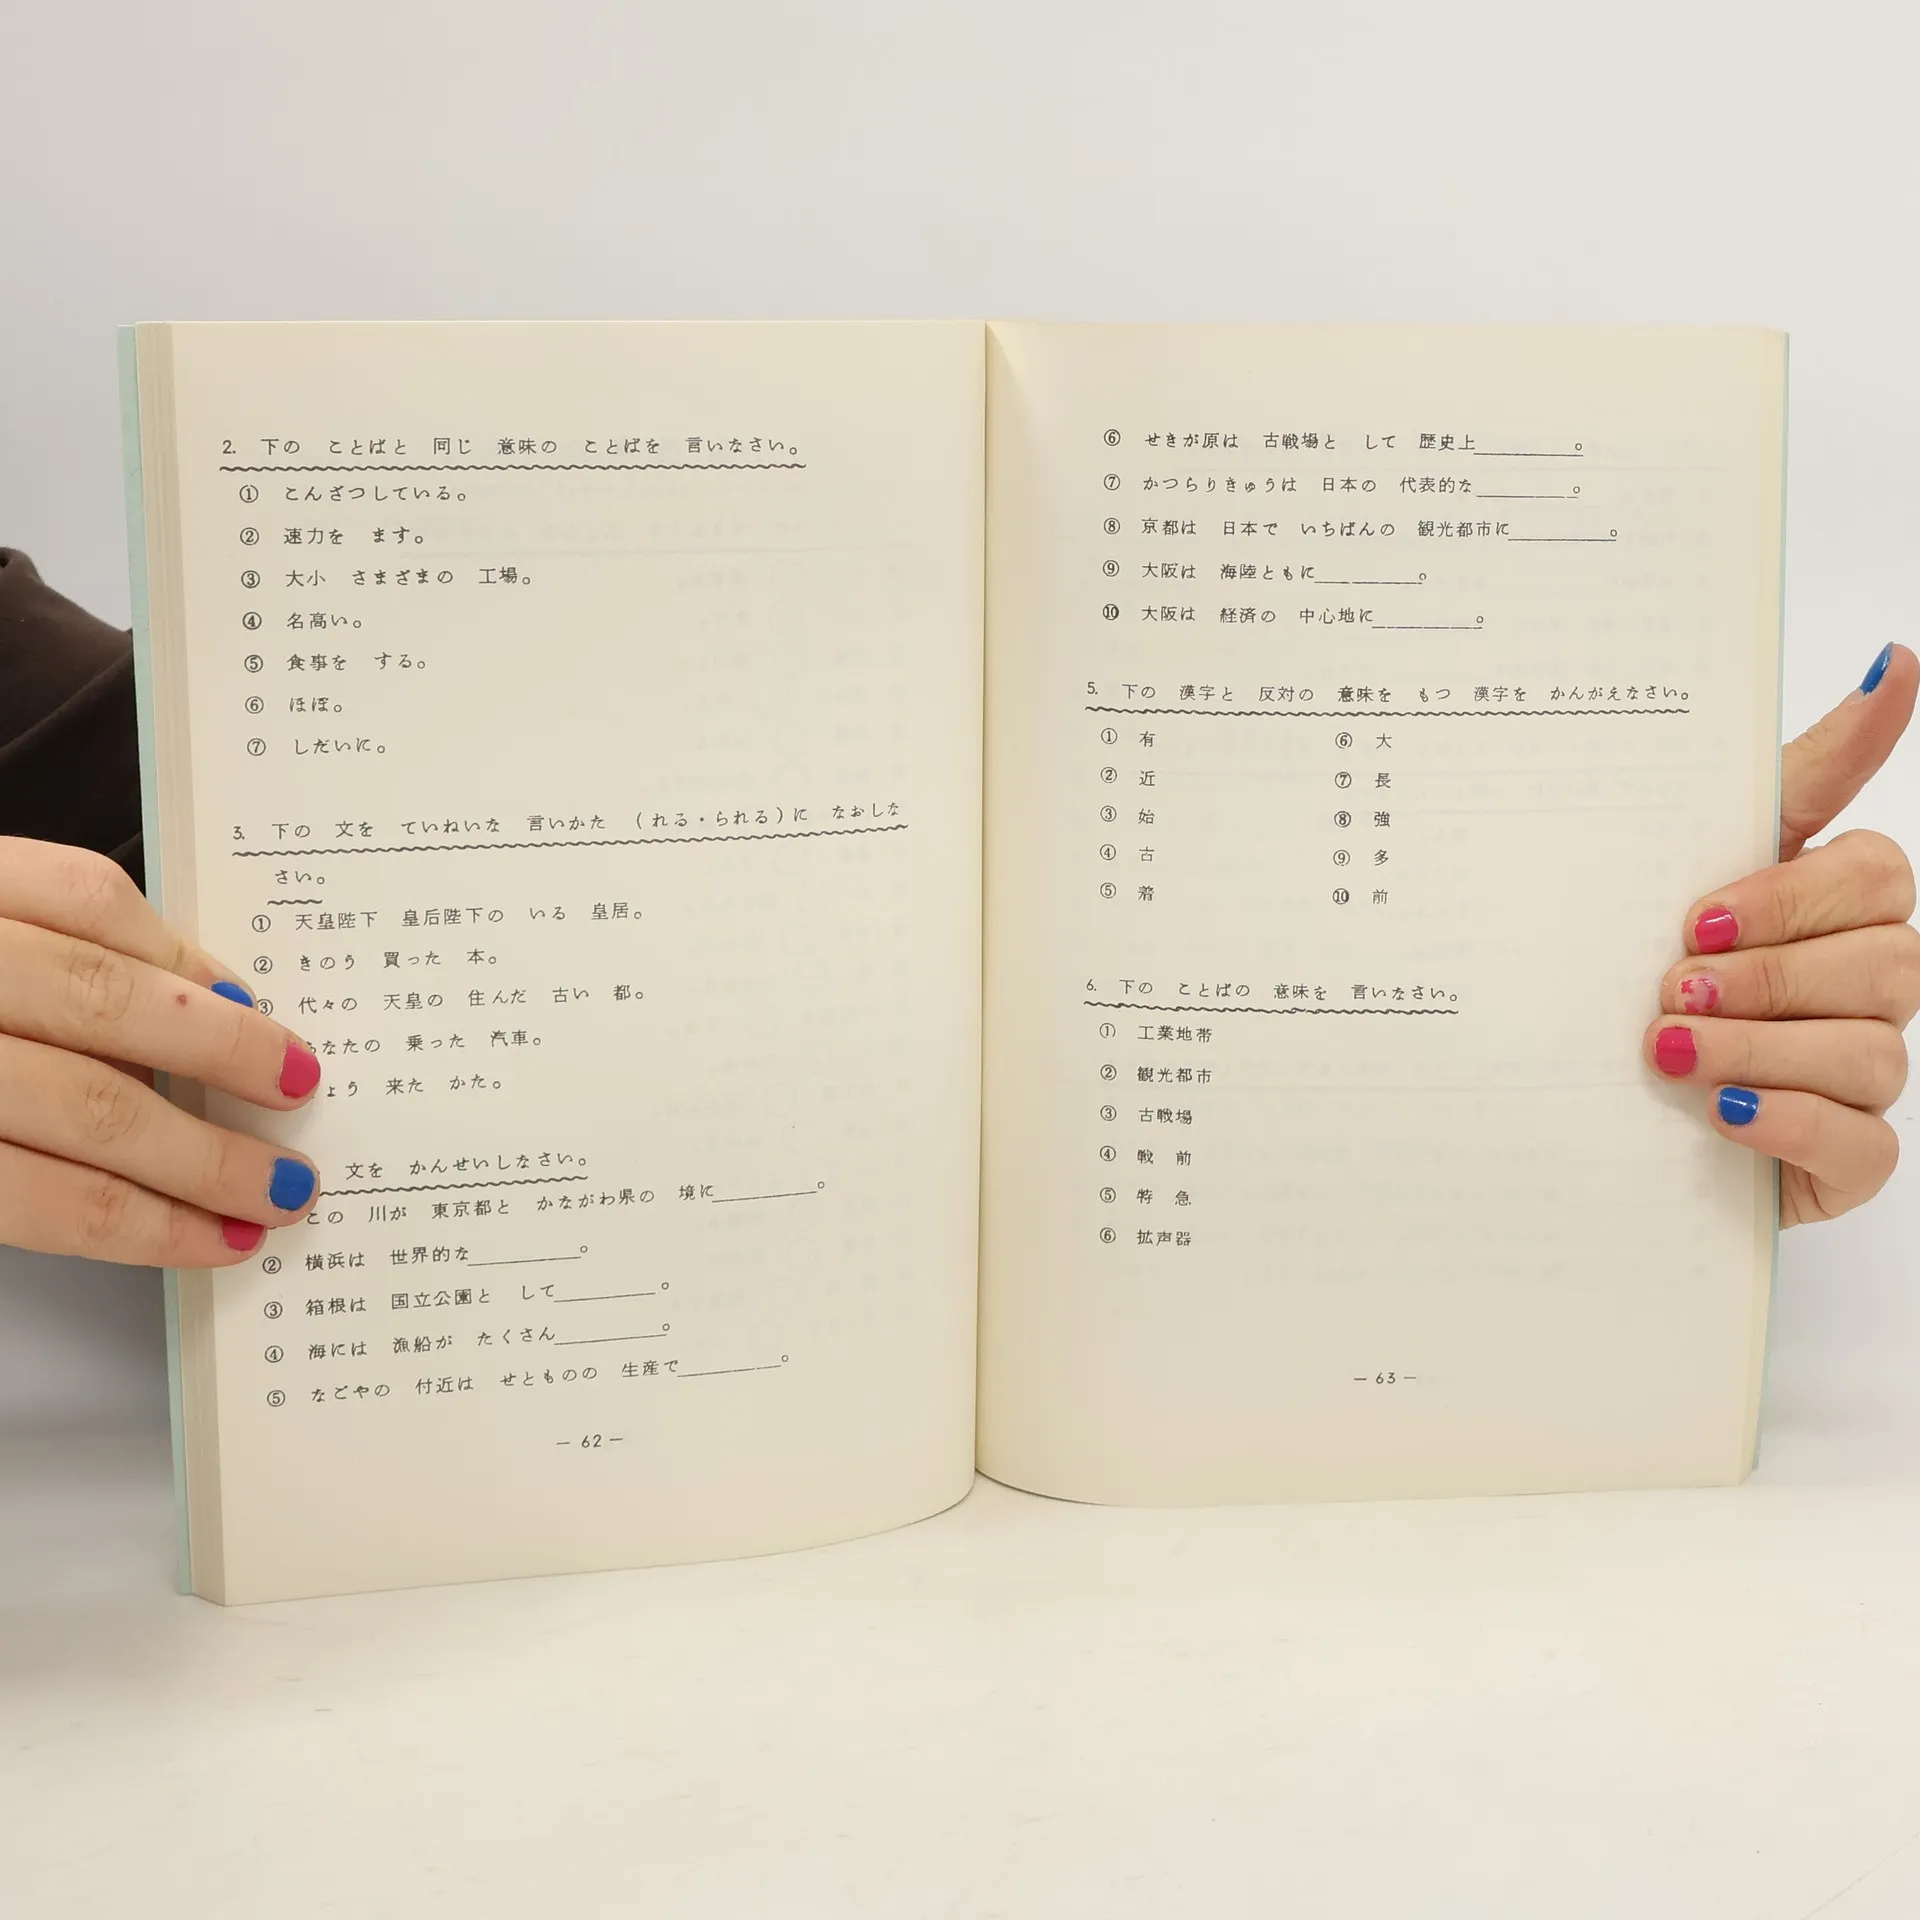 2. 下の ことばと 同じ 意味の ことばを 言いなさい。
① こんざつしている。
② 速力を ます。
③ 大小 さまざまの 工場。
④ 名高い。
⑤ 食事を する。
⑥ ほぼ。
⑦ しだいに。
3. 下の 文を ていねいな 言いかた (れる・られる)に なおしな
さい。
① 天皇陛下 皇后陛下の いる 皇居。
② きのう 買った 本。
③ 代々の 天皇の 住んだ 古い 都。
なたの 乗った 汽車。
ょう 来た かた。
文を かんせいしなさい。
この 川が 東京都と かながわ県の 境に__________。
② 横浜は 世界的な__________。
③ 箱根は 国立公園と して__________。
④ 海には 漁船が たくさん__________。
⑤ なごやの 付近は せとものの 生産で__________。
— 62 —
⑥ せきが原は 古戦場と して 歴史上__________。
⑦ かつらりきゅうは 日本の 代表的な__________。
⑧ 京都は 日本で いちばんの 観光都市に__________。
⑨ 大阪は 海陸ともに__________。
⑩ 大阪は 経済の 中心地に__________。
5. 下の 漢字と 反対の 意味を もつ 漢字を かんがえなさい。
① 有 ⑥ 大
② 近 ⑦ 長
③ 始 ⑧ 強
④ 古 ⑨ 多
⑤ 着 ⑩ 前
6. 下の ことばの 意味を 言いなさい。
① 工業地帯
② 観光都市
③ 古戦場
④ 戦 前
⑤ 特 急
⑥ 拡声器
— 63 —